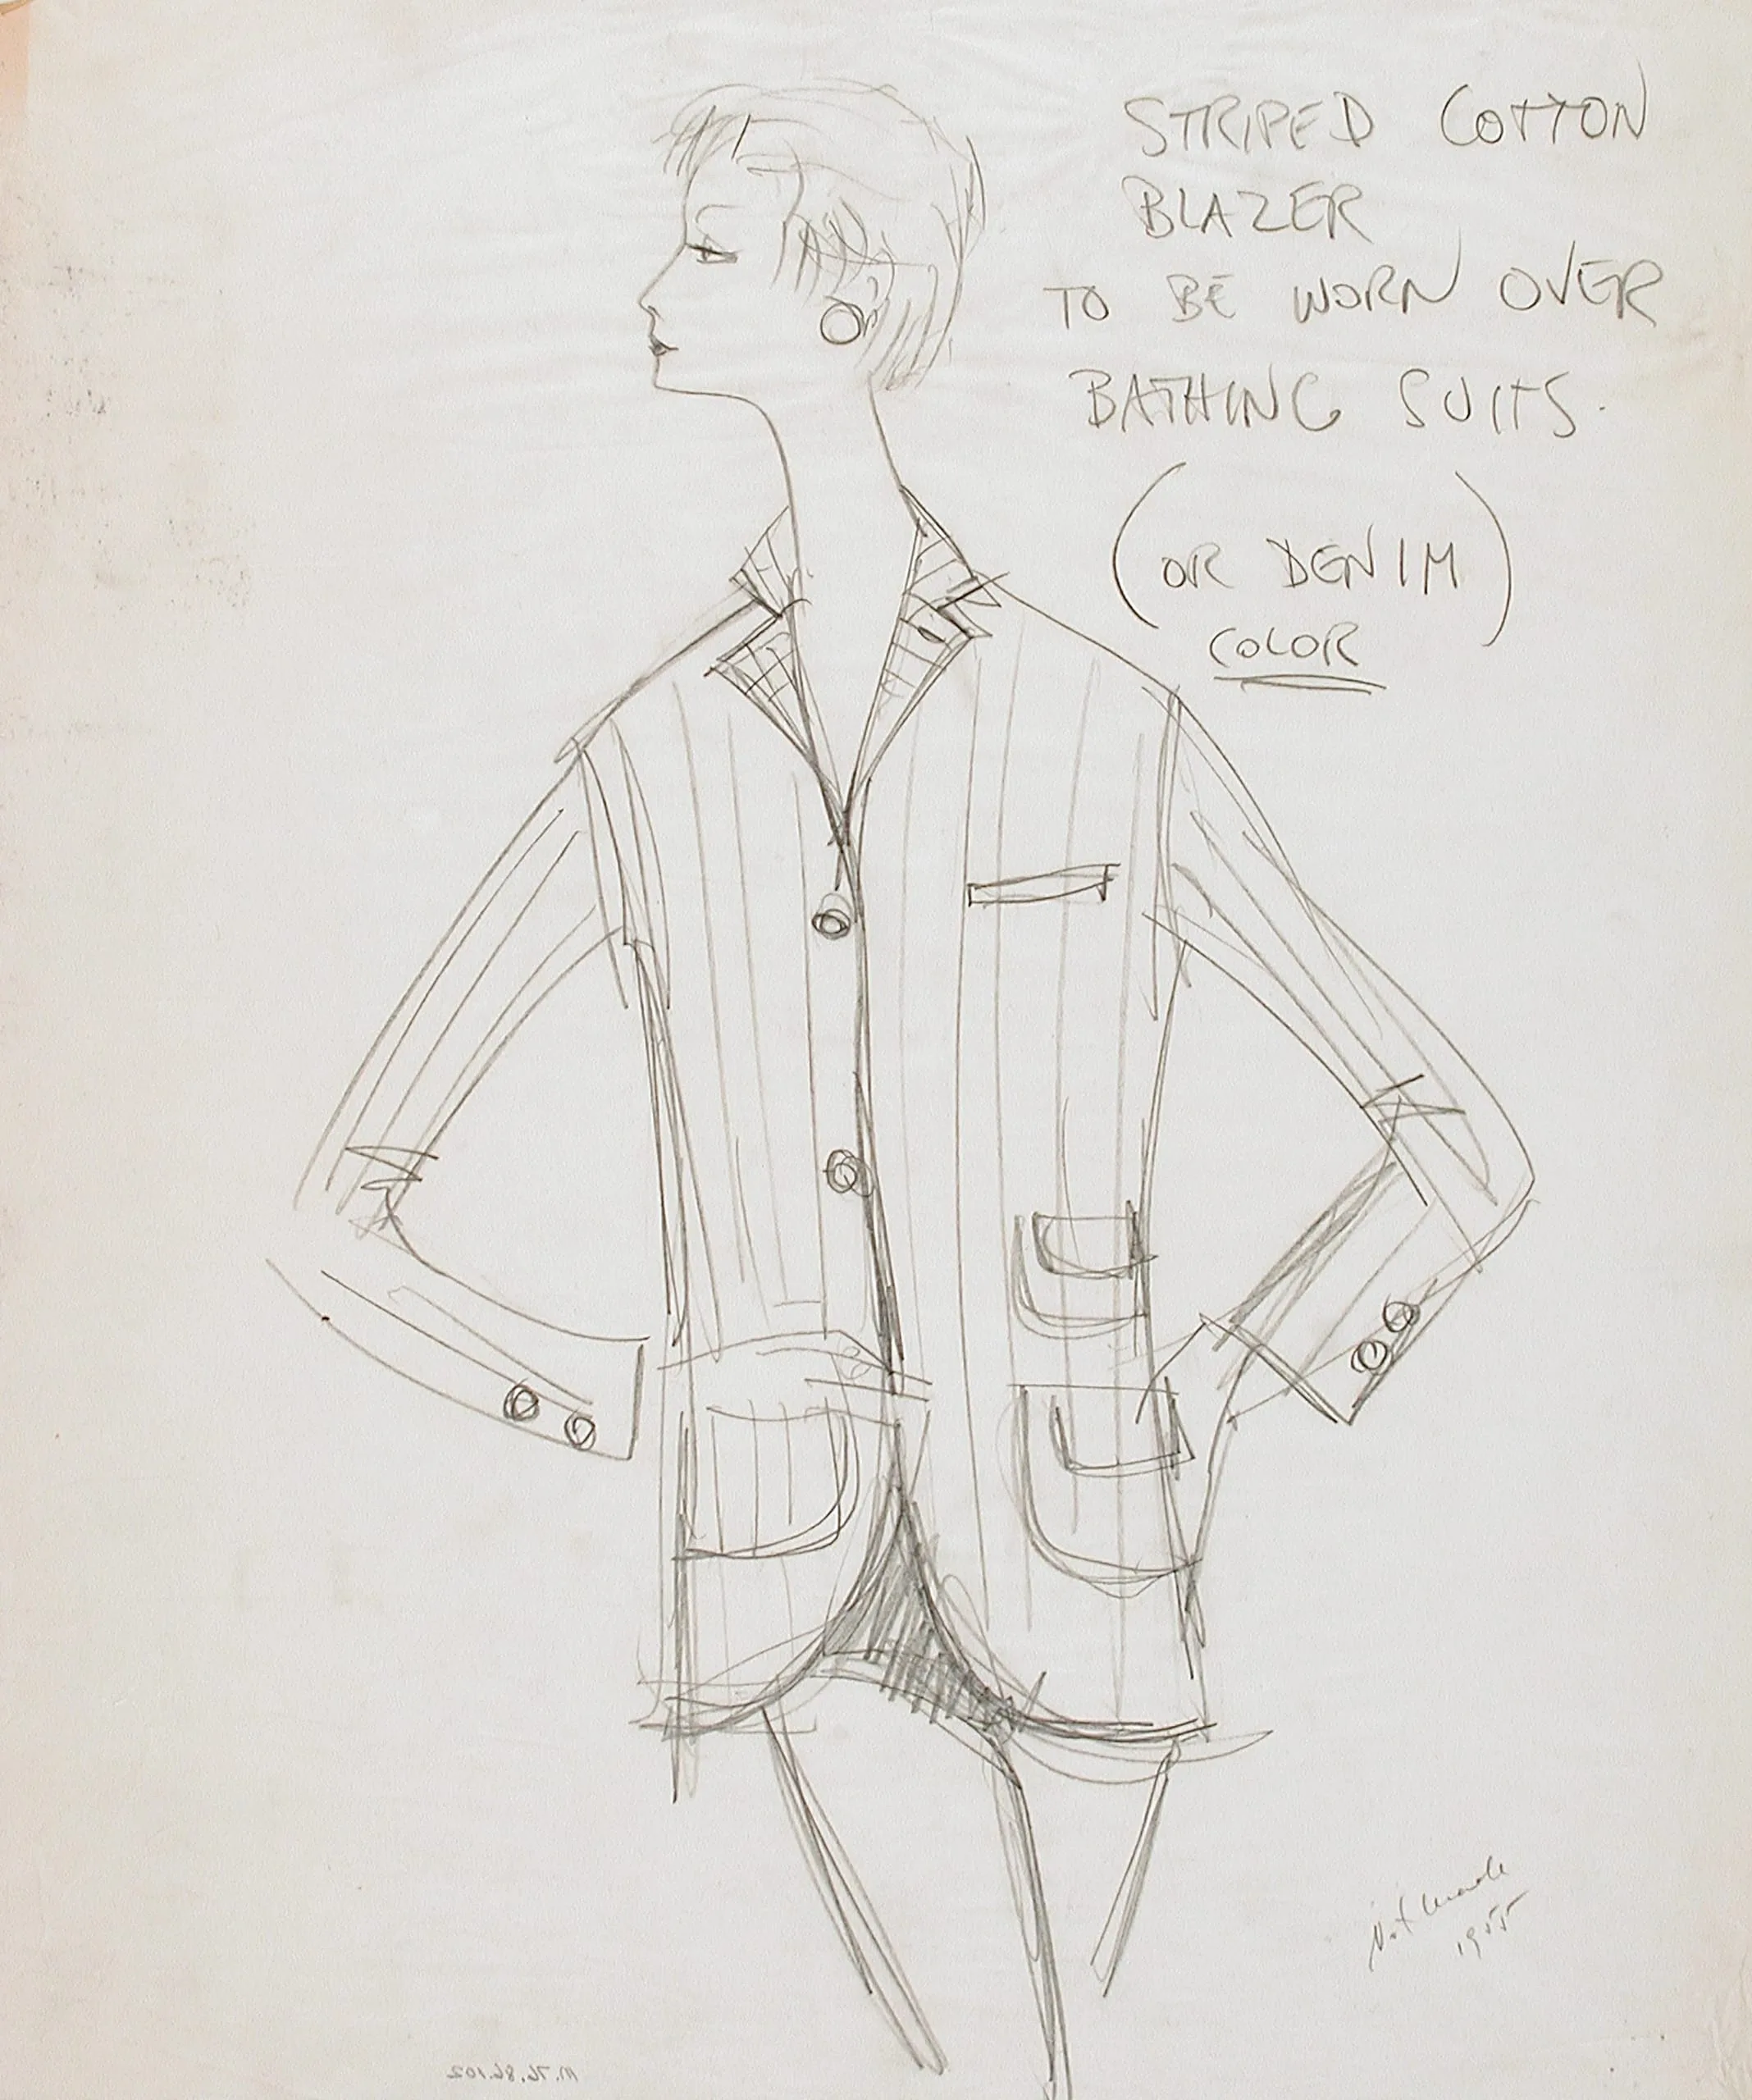 STRIPED COTTON
BLAZER
TO BE WORN OVER
BATHING SUITS.
(OR DENIM)
COLOR
Not made
1955
M.76.86.102